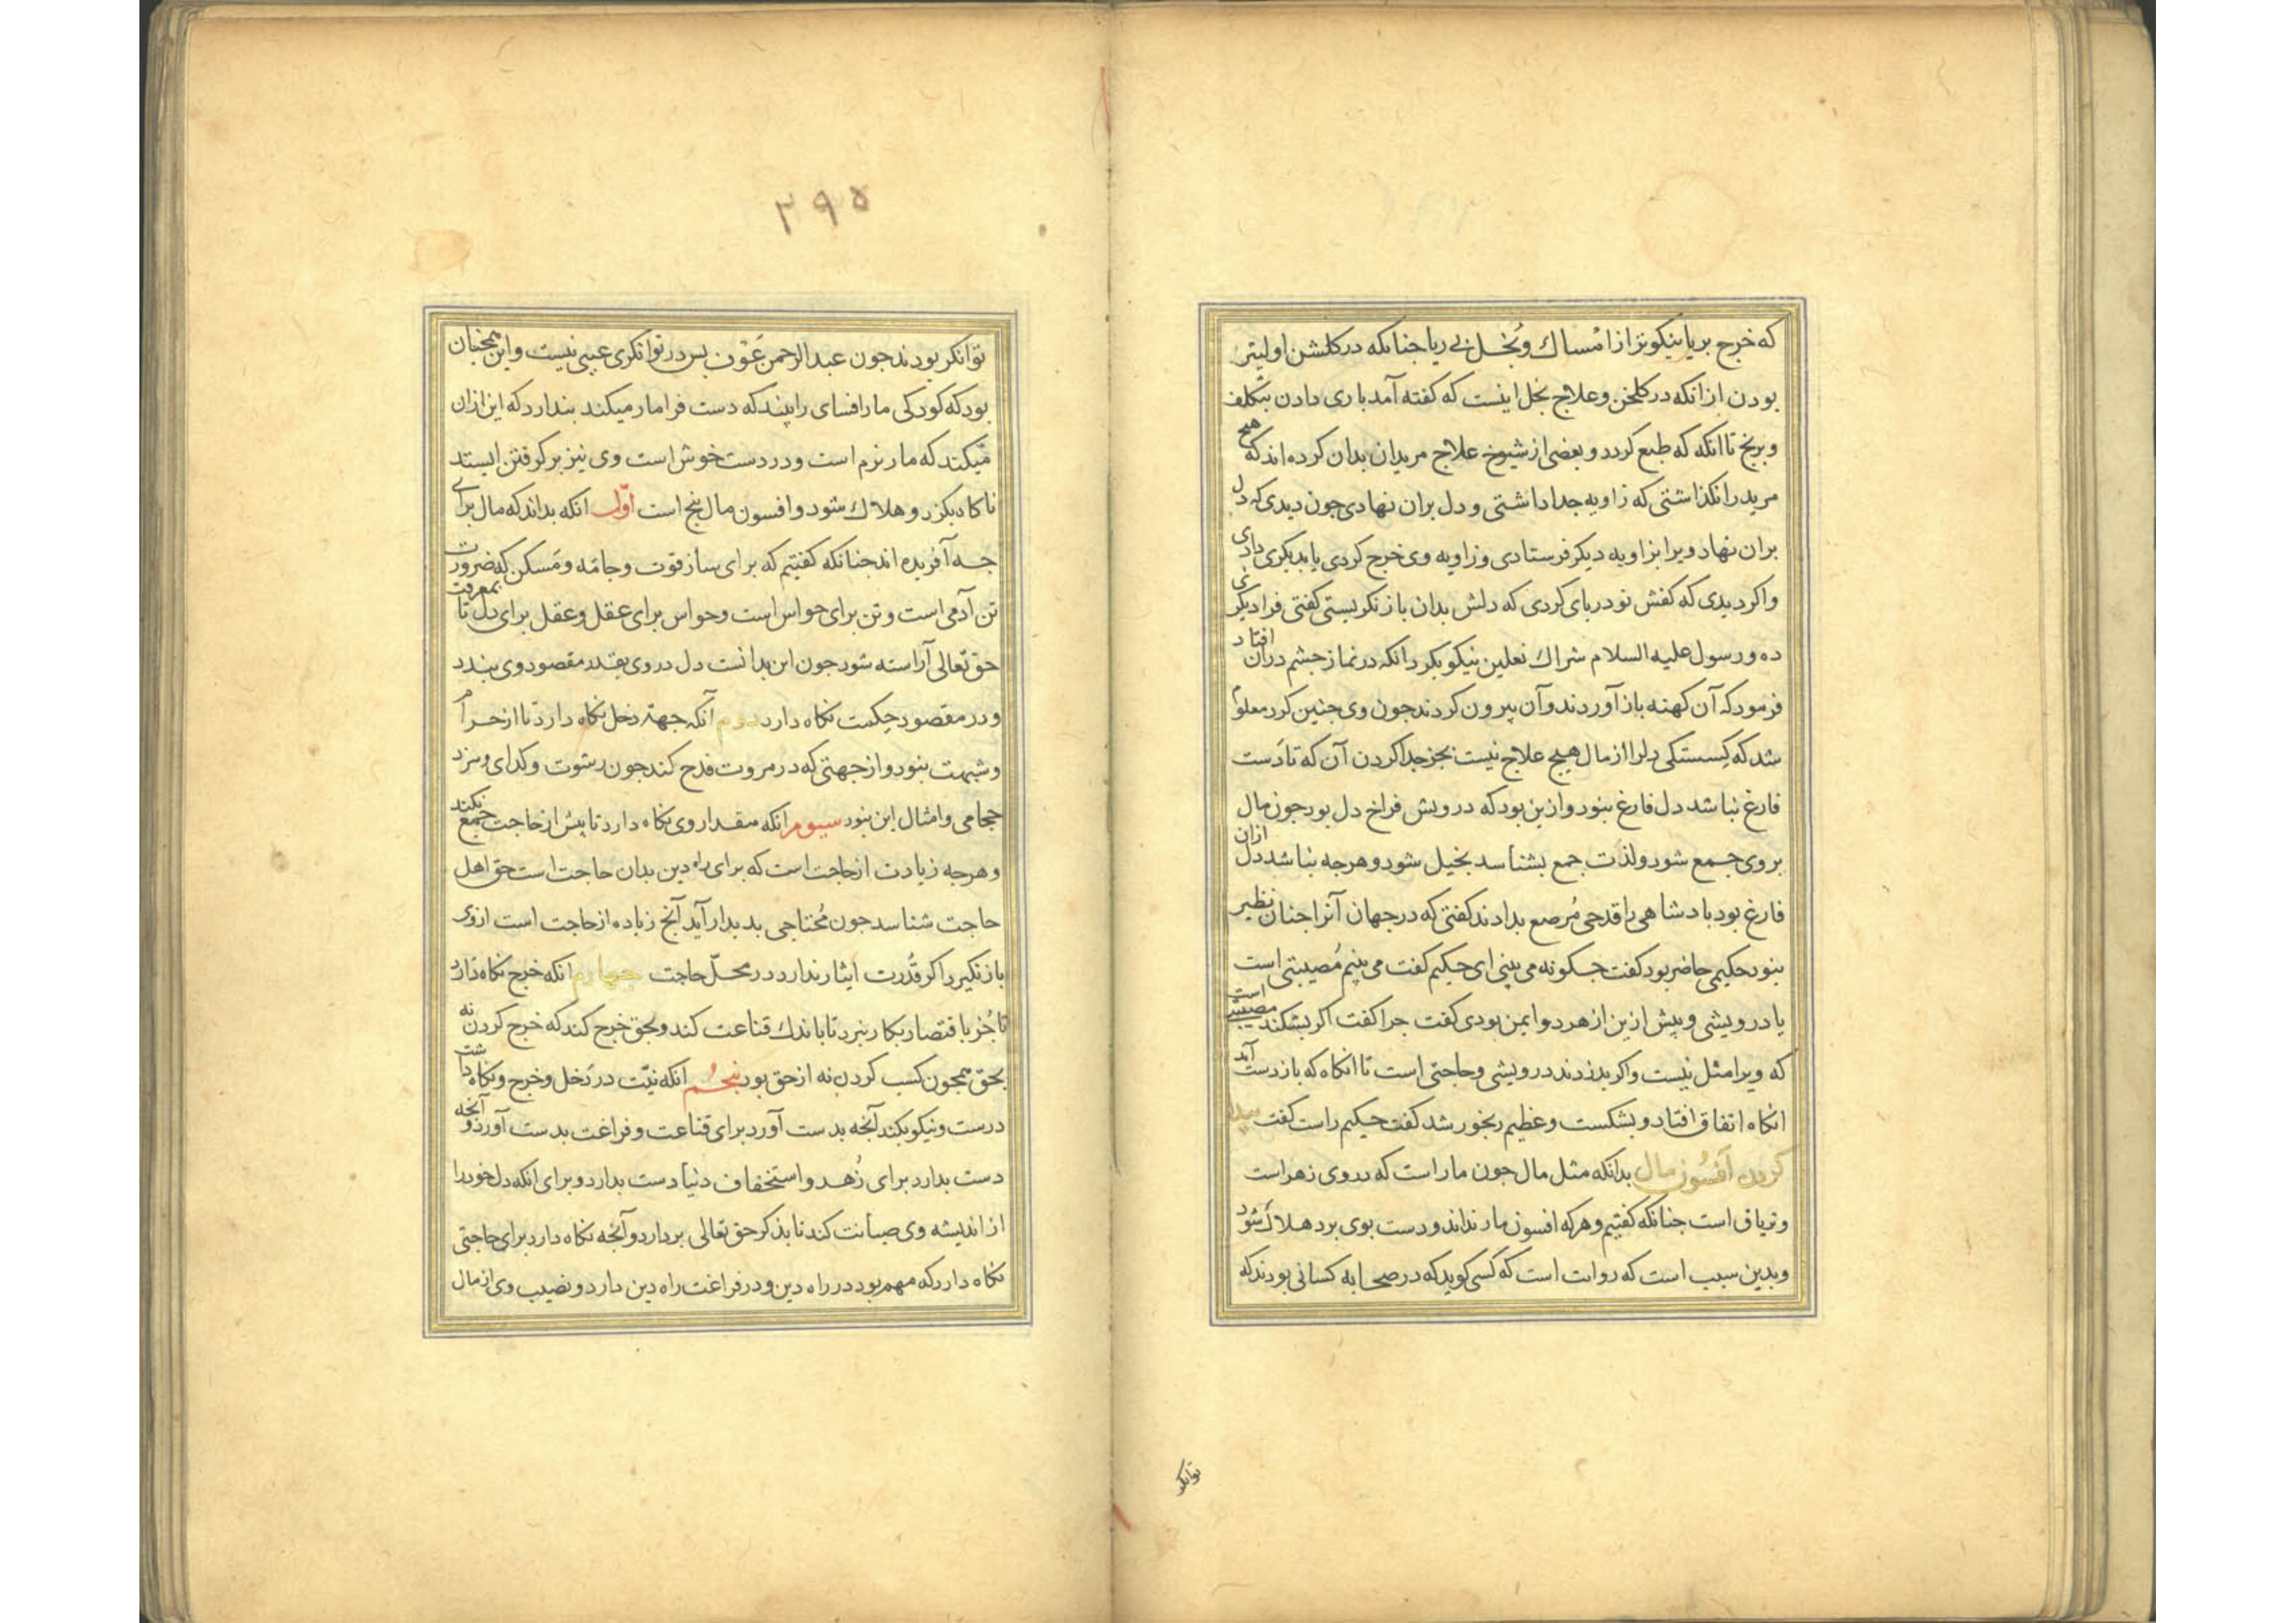 که خرج بریا نیکوتر از امساك و بخل بی ریا جنانکه در کلشن اولیتر
بودن از انکه در کلخن و علاج بخل اینست که کفته آمد باری دادن بتکلف
و برنج تا انکه که طبع کردد و بعضی از شیوخ علاج مریدان بدان کرده اند که هیچ
مرید را نکذاشتی که زاویه جدا داشتی و دل بران نهادی جون دیدی که دل
بران نهاد ویرا بزاویه دیکر فرستادی و زاویه وی خرج کردی یا بدیکری دادی
و اکر دیدی که کفش نو در بای کردی که دلش بدان باز نکریستی کفتی فرا دیکری
ده و رسول علیه السلام شراك نعلین نیکو بکرد انکه در نماز جشم دران افتاد
فرمود که آن کهنه باز آوردند و آن بیرون کردند جون وی جنین کرد معلوم
شد که کسستکی دلرا از مال هیج علاج نیست بجز جدا کردن آن که تا دست
فارغ نباشد دل فارغ نبود و ازین بود که درویش فراخ دل بود جون مال
بر وی جمع شود و لذت جمع بشناسد بخیل شود و هرجه نباشد دل ازان
فارغ بود بادشاهی را قدحی مرصع بدادند کفتی که در جهان آنرا جنان نظیر
نبود حکیمی حاضر بود کفت جکونه می بینی ای حکیم کفت می بینم مصیبتی است
یا درویشی و بیش ازین از هر دو ایمن بودی کفت جرا کفت اکر بشکند مصیبتی است
که ویرا مثل نیست و اکر بدزدند درویشی و حاجتی است تا انکاه که باز دست آید
انکاه اتفاق افتاد و بشکست و عظیم رنجور شد کفت حکیم راست کفت بیدا
کردن افسون مال بدانکه مثل مال جون مار است که در وی زهر است
و تریاق است جنانکه کفتیم و هر که افسون مار نداند و دست بوی برد هلاك شود
و بدین سبب است که روانست که کسی کوید که در صحابه کسانی بودند که
توانکر
۳۹۵
توانکر بودند جون عبدالرحمن عوف بس در توانکری عیبی نیست و این همجنان
بود که کودکی مار افسای را بیند که دست فرا مار میکند بندارد که این ازان
میکند که مار نرم است و در دست خوش است وی نیز بر کرفتن ایستد
ناکاه بکزد و هلاك شود و افسون مال بنج است اول انکه بداند که مال برای
جه آفریده اند جنانکه کفتیم که برای ساز قوت و جامه و مسکن که ضرورت
تن آدمی است و تن برای حواس است و حواس برای عقل و عقل برای دل تا بمعرفت
حق تعالی آراسته شود جون این بدانست دل در وی بقدر مقصود وی بندد
و در مقصود حکمت نکاه دارد دوم آنکه جهت دخل نکاه دارد تا از حرام
و شبهت نبود و از جهتی که در مروت قدح کند جون رشوت و کدای و مزد
حجامی و امثال این نبود سیوم انکه مقدار وی نکاه دارد تا بیش از حاجت جمع نکند
و هرجه زیادت از حاجت است که برای راه دین بدان حاجت است حق اهل
حاجت شناسد جون محتاجی بدیدار آید آنج زیاده از حاجت است از وی
باز نکیرد اکر قدرت ایثار ندارد در محل حاجت جهارم انکه خرج نکاه دارد
تا جز باقتصاد بکار نبرد تا باندك قناعت کند و بحق خرج کند که خرج کردن نه
بحق همجون کسب کردن نه از حق بود بنجم انکه نیت در دخل و خرج و نکاه داشت
درست و نیکو بکند آنجه بدست آورد برای قناعت و فراغت بدست آورد و آنجه
دست بدارد برای زهد و استخفاف دنیا دست بدارد و برای انکه دل خود را
از اندیشه وی صیانت کند تا بذکر حق تعالی بردارد و آنجه نکاه دارد برای حاجتی
نکاه دارد که مهم بود در راه دین و در فراغت راه دین دارد و نصیب وی از مال